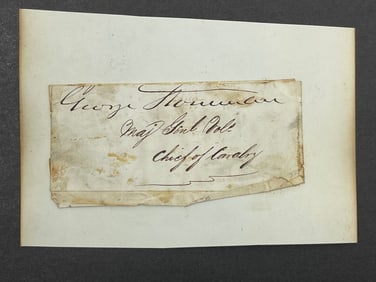 George Stoneman
Maj Genl Vols
Chief of Cavalry